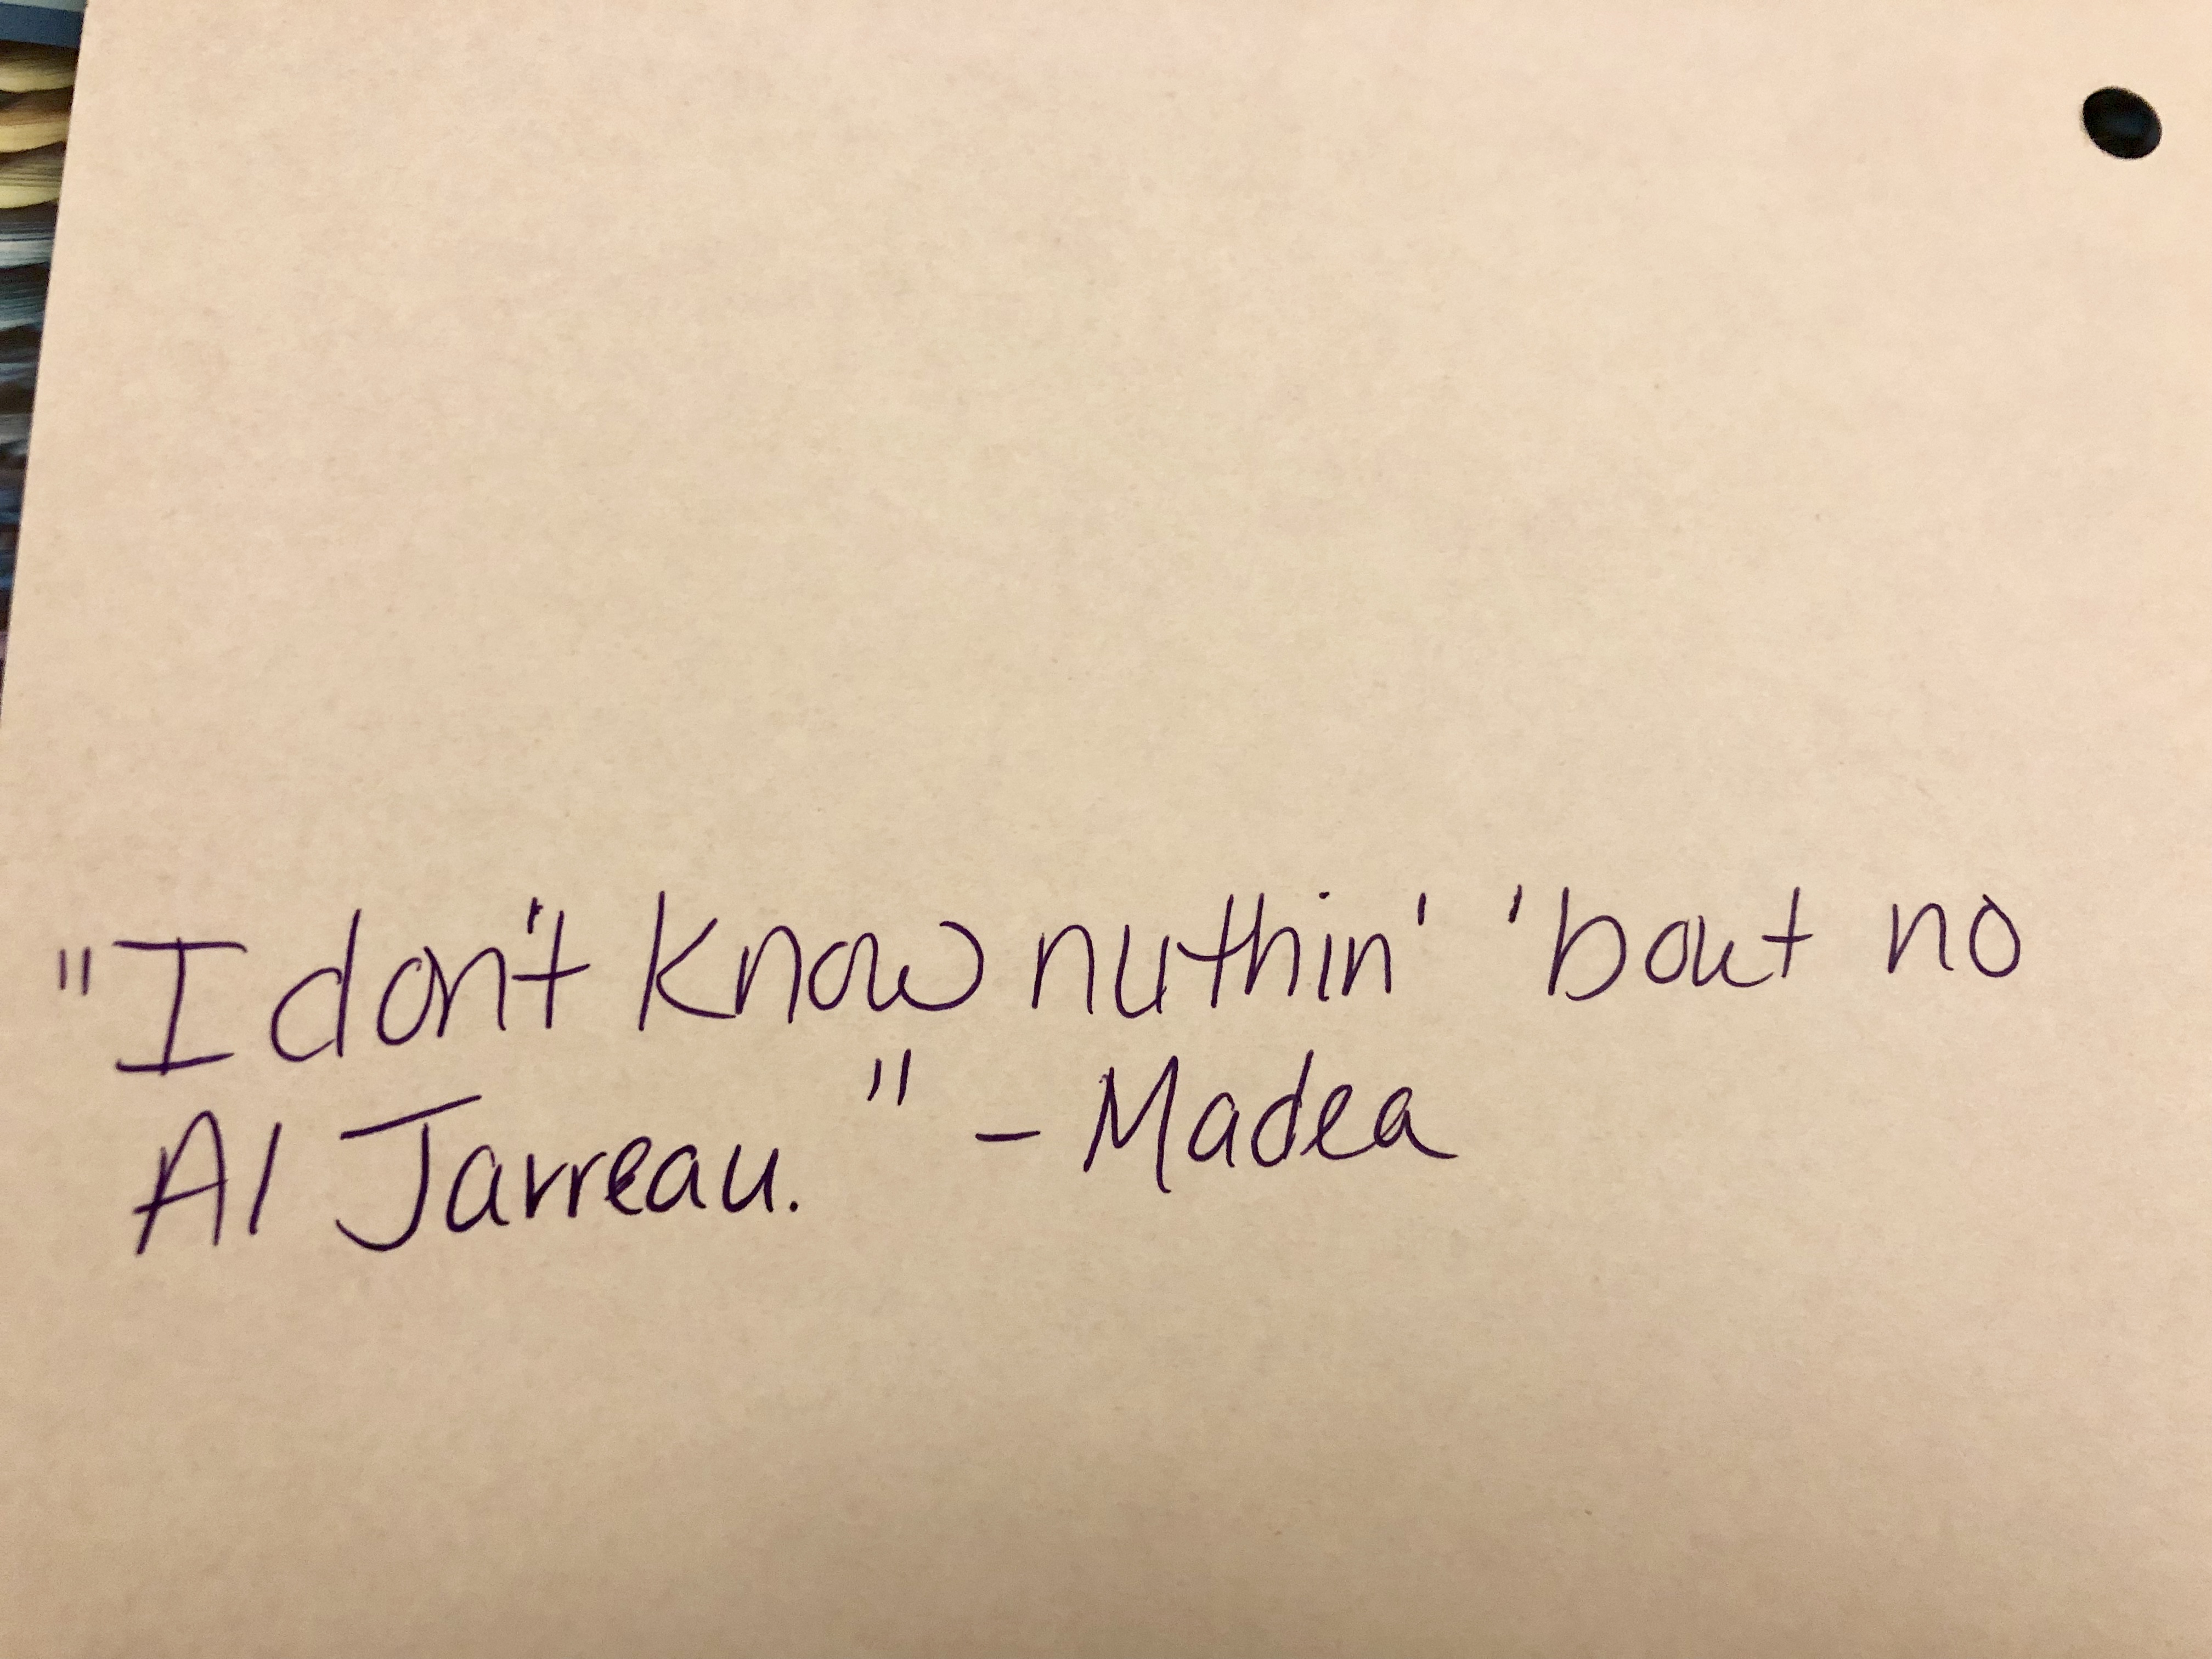 "I don't know nuthin' 'bout no
Al Jarreau." - Madea